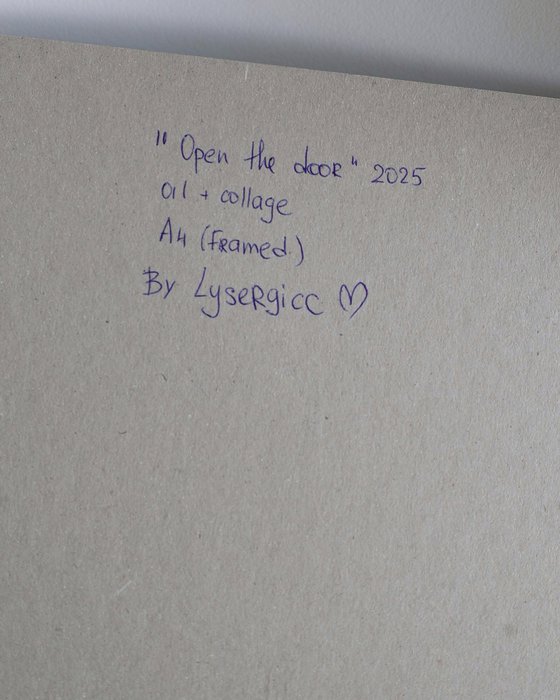 "Open the door" 2025
oil + collage
A4 (framed.)
By Lysergicc ♡